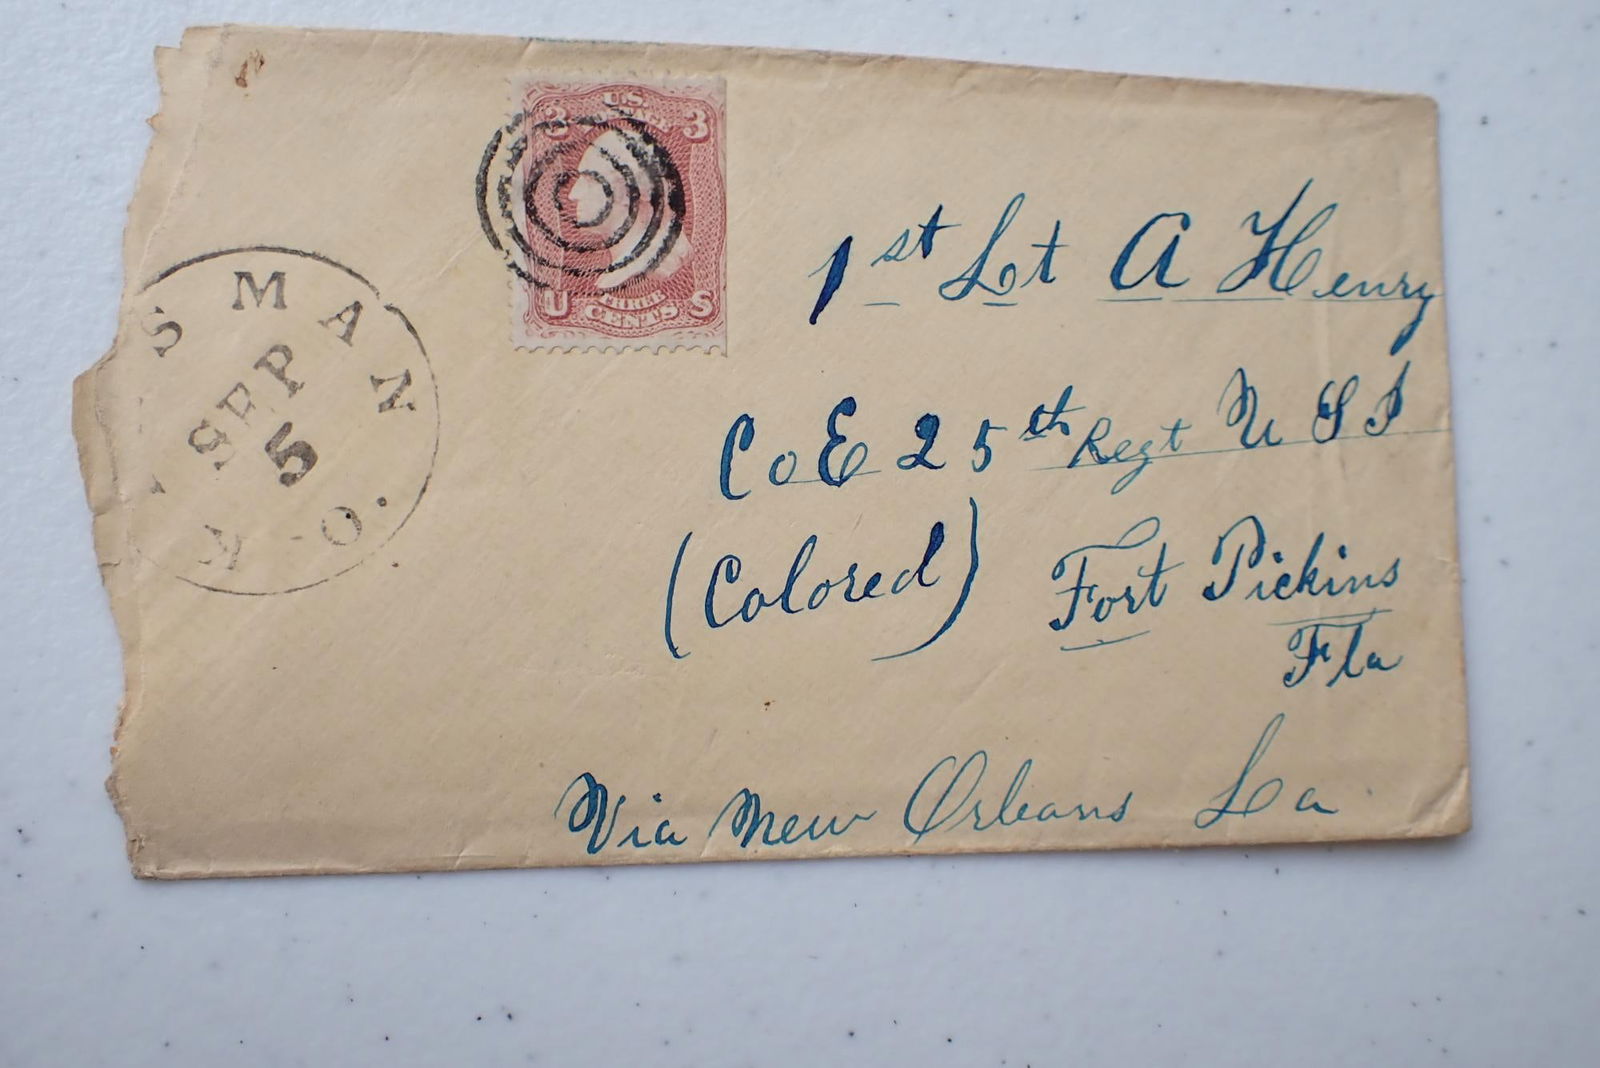 U.S.
3 3
U THREE S
CENTS
S MAN
SEP
5
O.
1st Lt A Henry
Co E 25th Regt U S I
(Colored) Fort Pickins
Fla
Via New Orleans La